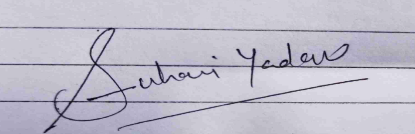 Suhani Yadav